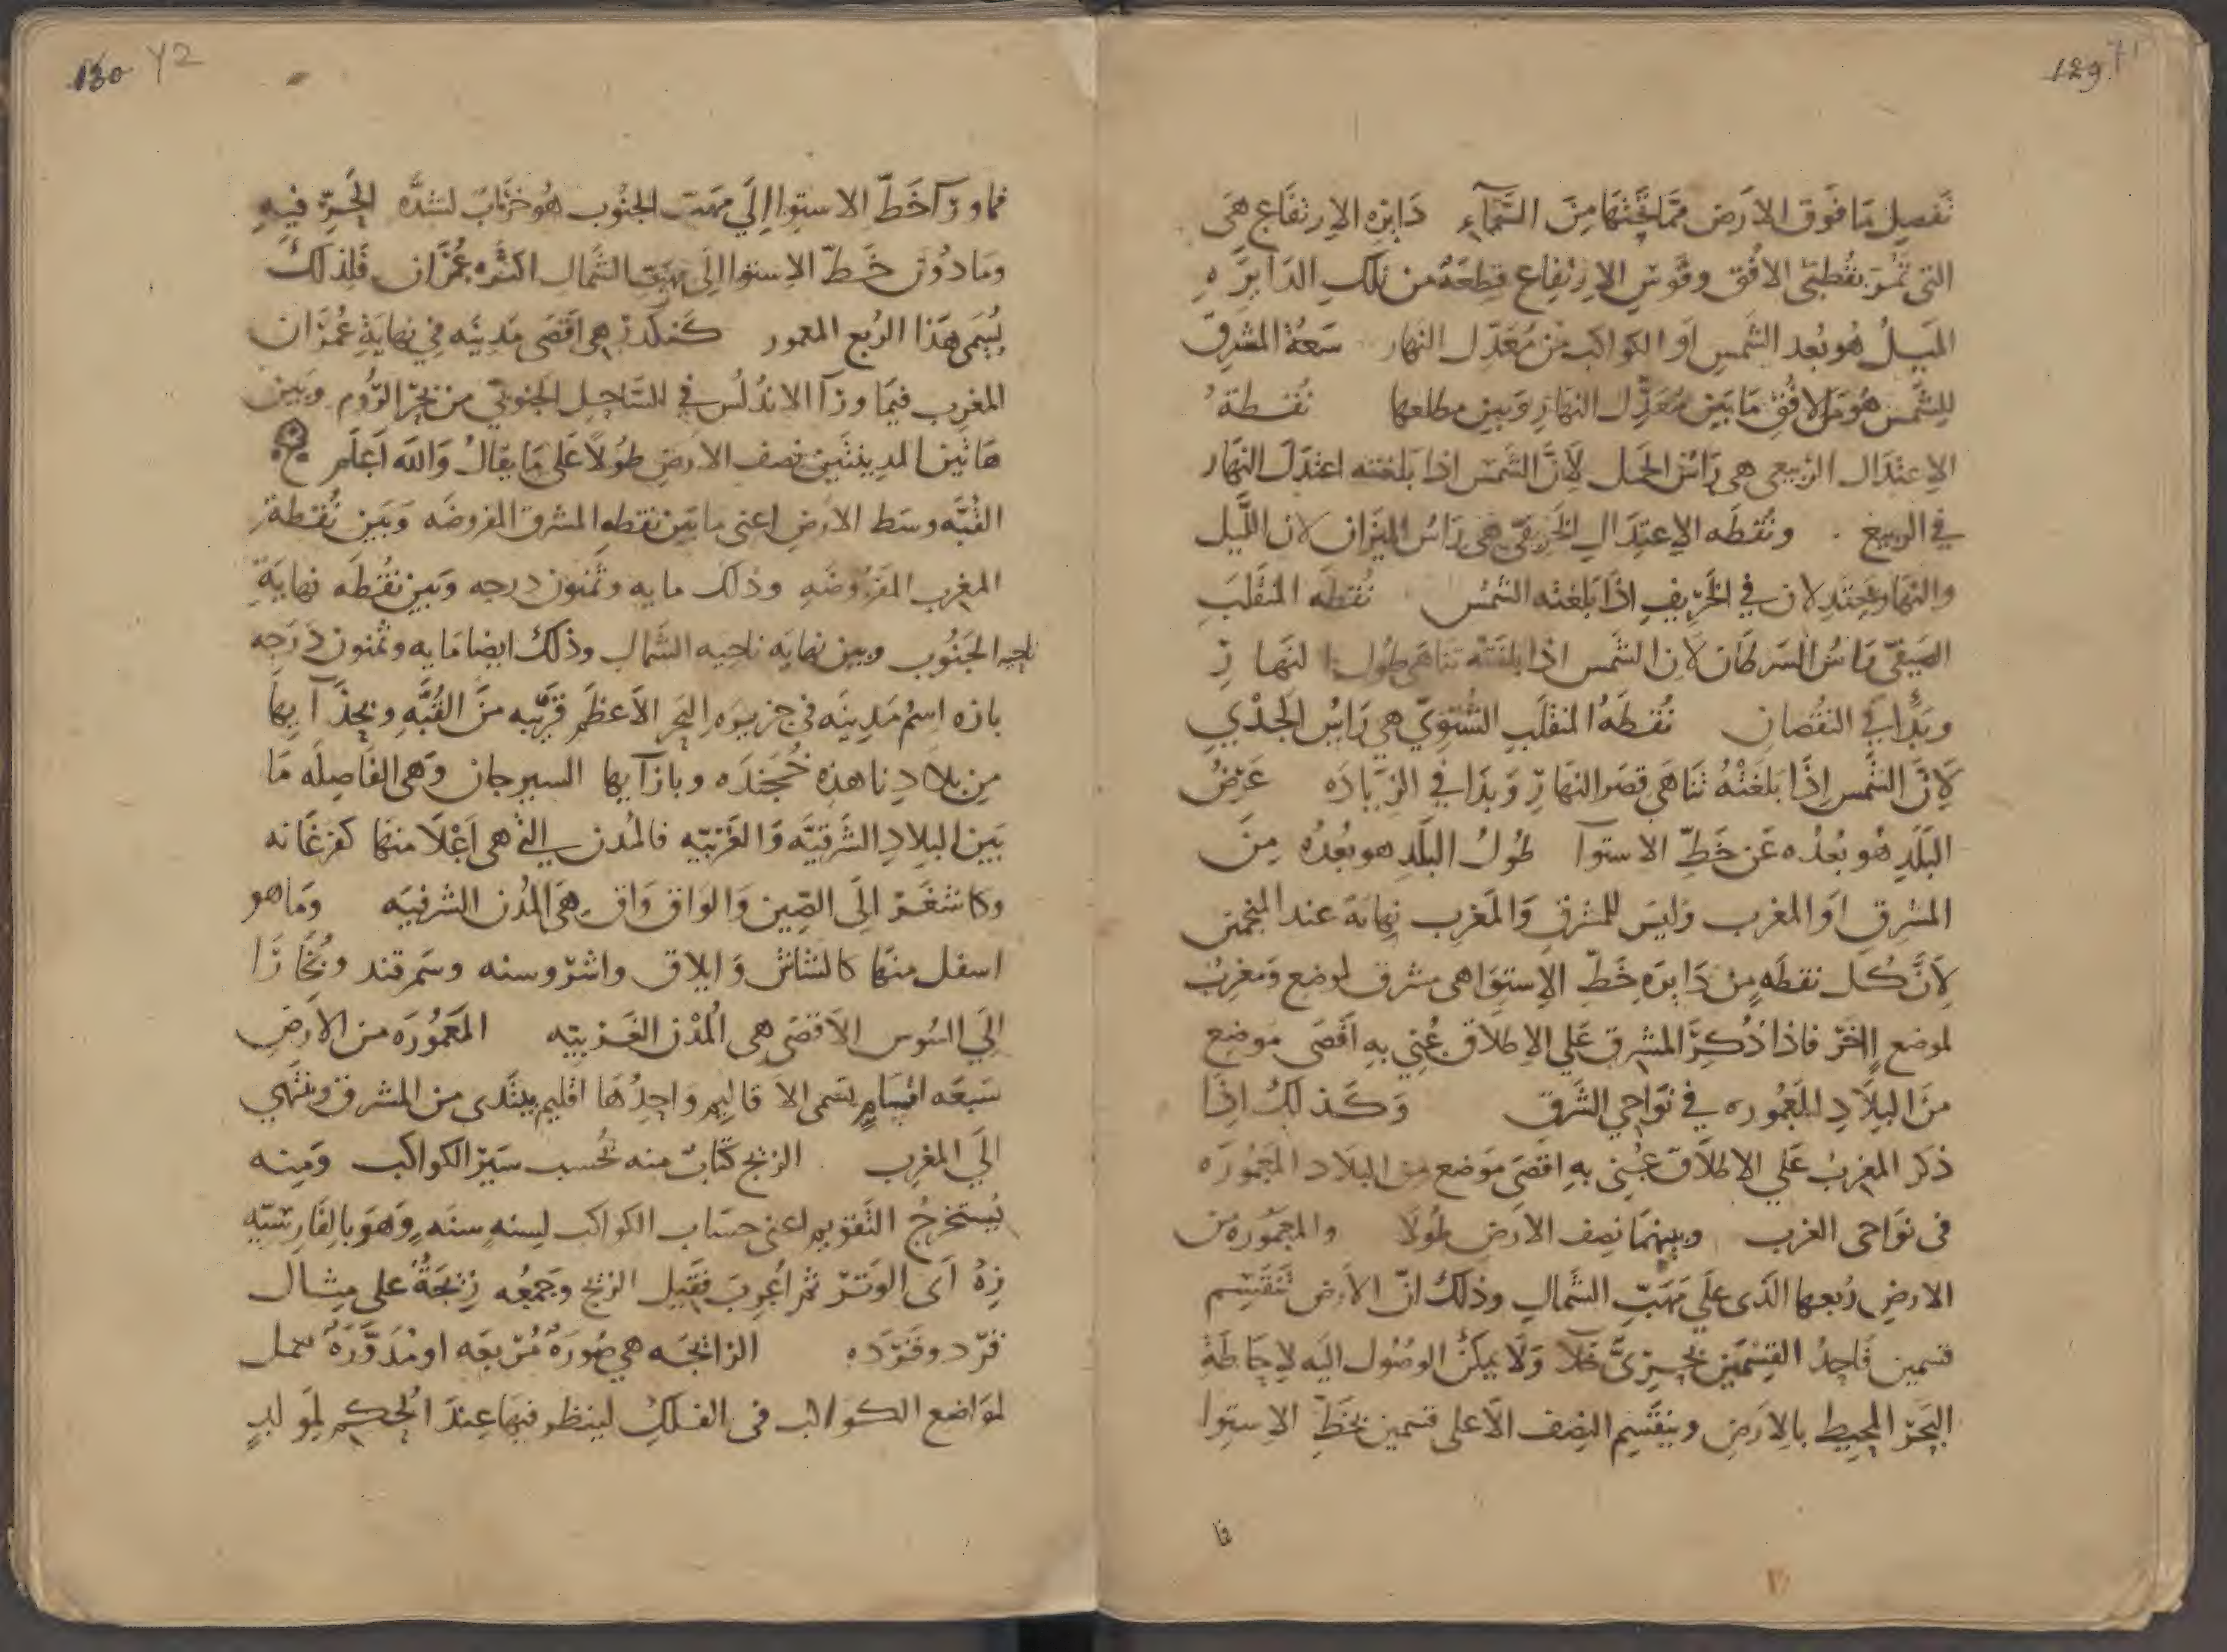 129 71
تَفصِل مَا فَوق الارَض مَمّا تَحتَهَا مِنَ السَّمَآءِ دَايره الارتفَاع هَى
التى تَمُرّ بنُقطتَى الافُق وقَوسَ الارتفاع قِطعَةٌ من تلك الدَايرَهِ
الميَلُ هُو بُعد الشَمسِ اوَ الكواكب من مُعَدّل النهار سَعَةُ المشرق
للِشَمس هُوَ مَن الافُقِ مَا بَين مُعَدّل النهَارِ وَبين مطلعها نُقطةُ
الاعتِدَال الرَبيعى هى رَاسُ الحَمل لِاَنَّ الشَمسَ اذا بَلغته اعتدَل النهَار
فى الرَبيع ونُقطَه الاعتِدَالِ الخَريفىّ هى رَاسُ الميَزان لان اللَّيل
والنهَار يَعتَدِلان فى الخَرِيفِ اذَا بَلغته الشَمسُ نُقطَه المنقَلَبَ
الصَيفىّ رَاسُ السَرطَان لان الشَمس اذا بَلغَتْهُ تنَاهَى طُول النهَارِ
وبَدَا فى النقُصَانِ نُقطَةُ المنقلَبِ الشَتوِىّ هى رَاسُ الجَدْىِ
لِاَنَّ الشَمس اِذَا بَلَغَتْهُ تَنَاهَى قِصَر النهَارِ وَبَدَا فى الزيَادَه عَرْضُ
البَلَدِ هُو بُعدُه عَن خَطّ الاستوآ طُولُ البَلَدِ هو بعُدُه مِنَ
المشرِق اوَ المغرب وَليَس للمشرق وَالمَغرب نِهَايَة عند المنجمين
لاَنَّ كُل نقطَهٍ مِنْ دَايرَه خَطّ الاِستوَا هى مشرق لموضع وَمغرب
لموضع اٰخَر فاذا ذُكِرَ المشرق عَلى الاطلاَق عُنِى بهِ اَقصَى مَوضع
منَ البلِاَدِ المَعْمُوره فى نوَاحى الشَرق وَكَذلكَ اذَا
ذكر المغربُ عَلى الاطلاَق عُنِى بهِ اقصَى مَوضع مِن البلَاد المعَمورَه
فى نوَاحى الغرب وبينهمَا نصِف الارَض طُولاً والمعمُوره من
الارض رُبعها الذَى علَى مَهَبّ الشمال وذلكَ انّ الاَرض تَنقَسِم
قسمين فَاحِدُ القِسْمَين بَحرىٌّ خَلآ وَلَا يمكنُ الوصُول اليَه لاِحَاطَة
البَحرْ المحِيط بالارَض وينقَسِم النِصف الاَعلى قسمين بخَطّ الاستوا
فا
130 72
فما ورَآ خَطّ الاستوا الَى مهَبّ الجنُوب هُو خرَابٌ لشدَّه الحَرّ فيهِ
ومَا دُوْن خَطّ الاستوا الَى مهَبّ الشَمال اكثَره عمُرَان فَلِذلكَ
يُسَمى هَذا الرُبع المعمور كنكدز هى اَقصَى مَدينَه فى نهايَةِ عُمرَان
المَغرِب فيمَا ورَآ الاندُلُس فى السَاحِل الجنوبىّ من بَحْر الرُوم وَبَين
هَاتَين المدينتَين نصف الارَض طوُلاً علَى مَا يقالُ وَالله اَعلَم
القُبَّه وسَط الارَض اعنى مابَين نقطه المشرق المفروضَه وَبَين نُقطةِ
المغرب المَفروُضَه وذلك مايه وثَمنون درجه وَبين نقُطَه نهايَةِ
ناحيه الجَنُوب وبين نهايَه ناحيه الشَمال وذلكَ ايضا مَايه وثَمنون دَرَجه
باره اسمُ مَدينَه فى جزيره البَحر الاَعظم قَريَبه منَ القُبَّه وبحِذَآيها
مِن بلاَدنا هذهِ خُجَندَه وبازآيها السيرجان وَهى الفَاصِلَه مَا
بَين البلِادِ الشَرقيَّه وَالغَربيّه فالمُدن التى هى اَعْلاَ منهَا كفرغَانه
وكاشغَر الَى الصّين وَالوَاق وَاق هَى المُدُن الشرقيَه وَمَا هو
اسفل منهَا كالشَاش وَايلاق واشروسنه وسَمرقند وبُخَارَا
الَى السُوس الاَقصَى هى المُدْن الغَربيّه المَعمُورَه من الارَض
سَبعَه اقسَامٍ يسَمى الاقاليم وَاحِدُهَا اقليم يبتَدى من المشرق وينتَهى
الَى المغرِب الزيج كتَابٌ منه يُحْسب سَيْر الكواكب وَمِنه
يُستخرجُ التَقويم اعنى حسَاب الكواكب لِسنهٍ سنَهٍ وَهوَ بالفَارسيّه
زِهْ اَى الوَتَر ثم اُعرِبَ فقيل الزيج وَجمعُه زِيَجَةٌ على مِثَال
قرد وقرَدَه الزايجَه هى صُورَةٌ مُربَّعَه او مُدَوَّرَةٌ تعمل
لمَوَاضع الكواكب فى الفَلكِ لينظر فيهَا عِندَ الحُكم لِموَلدٍ